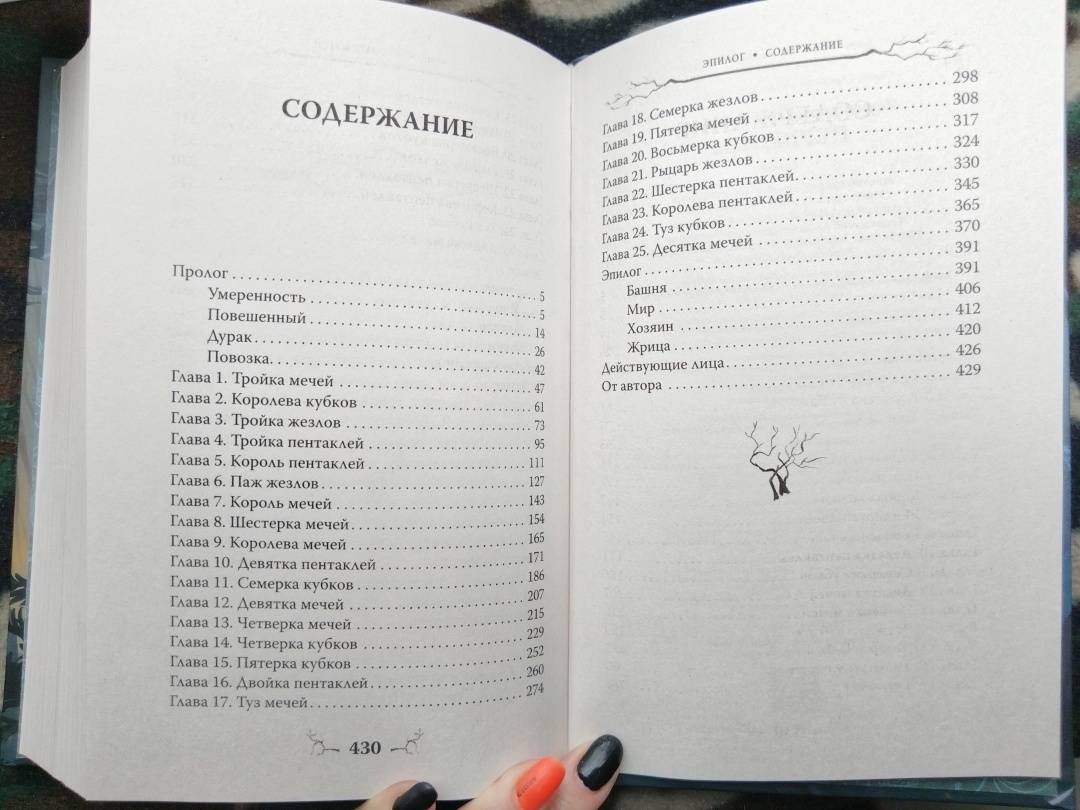 СОДЕРЖАНИЕ
Пролог 5
Умеренность 5
Повешенный 14
Дурак 26
Повозка 42
Глава 1. Тройка мечей 47
Глава 2. Королева кубков 61
Глава 3. Тройка жезлов 73
Глава 4. Тройка пентаклей 95
Глава 5. Король пентаклей 111
Глава 6. Паж жезлов 127
Глава 7. Король мечей 143
Глава 8. Шестерка мечей 154
Глава 9. Королева мечей 165
Глава 10. Девятка пентаклей 171
Глава 11. Семерка кубков 186
Глава 12. Девятка мечей 207
Глава 13. Четверка мечей 215
Глава 14. Четверка кубков 229
Глава 15. Пятерка кубков 252
Глава 16. Двойка пентаклей 260
Глава 17. Туз мечей 274
430
ЭПИЛОГ • СОДЕРЖАНИЕ
Глава 18. Семерка жезлов 298
Глава 19. Пятерка мечей 308
Глава 20. Восьмерка кубков 317
Глава 21. Рыцарь жезлов 324
Глава 22. Шестерка пентаклей 330
Глава 23. Королева пентаклей 345
Глава 24. Туз кубков 365
Глава 25. Десятка мечей 370
Эпилог 391
Башня 391
Мир 406
Хозяин 412
Жрица 420
Действующие лица 426
От автора 429